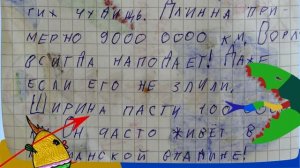 гих чудищь. Длинна при-
мерно 9000 0000 км. Ворл
всигда нападает! Даже
если его не злили.
Ширина пасти 100
Он часто живет в
анской впадине!